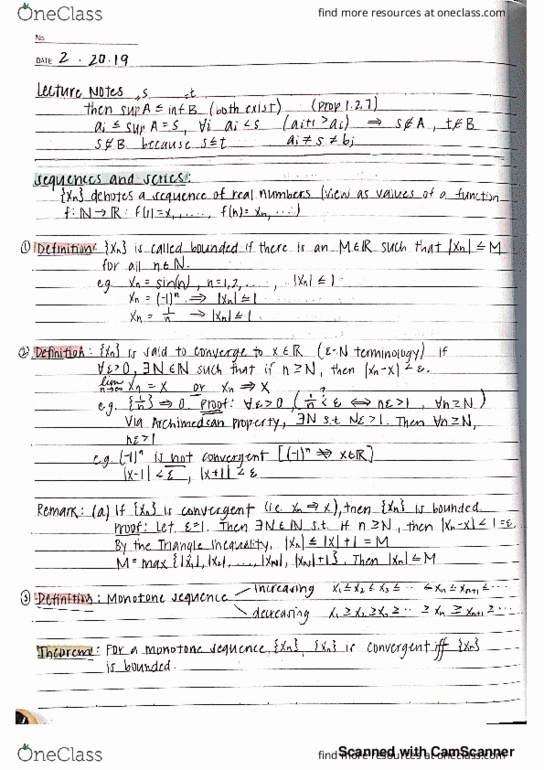 OneClass
find more resources at oneclass.com
No.
DATE 2 . 20.19
Lecture Notes s t
then sup A ≤ inf B (both exist) (Prop 1.2.7)
ai ≤ sup A = s, ∀i ai < s (ai+1 > ai) ⇒ s∉A, t∉B
s∉B because s≤t ai ≠ s ≠ bj
sequences and series:
{xn} denotes a sequence of real numbers (view as values of a function
f: N→R: f(1)=x, ...., f(n)=xn, ...)
① Definition: {xn} is called bounded if there is an M∈R such that |xn| ≤ M
for all n∈N.
e.g. xn = sin(n), n=1,2, ..., |xn| ≤ 1
xn = (-1)^n ⇒ |xn| ≤ 1
xn = 1/n → |xn| ≤ 1
② Definition: {xn} is said to converge to x∈R (ε-N terminology) if
∀ε>0, ∃N∈N such that if n≥N, then |xn-x| < ε.
lim n→∞ xn = x or xn ⇒ x
e.g. {1/n} ⇒ 0. Proof: ∀ε>0, (1/n <? ε ⟺ nε>1, ∀n≥N)
Via Archimedean property, ∃N s.t. Nε>1. Then ∀n≥N,
nε>1
e.g. (-1)^n is not convergent [(-1)^n ⇏ x∈R]
|x-1| < ε, |x+1| < ε
Remark: (a) If {xn} is convergent (i.e. xn ⇒ x), then {xn} is bounded.
Proof: Let ε=1. Then ∃N∈N s.t. if n≥N, then |xn-x| < 1 = ε.
By the Triangle Inequality, |xn| ≤ |x|+1 = M
M = max{|x1|, |x2|, ..., |xN|, |xN|+1}. Then |xn| ≤ M
③ Definition: Monotone sequence
increasing x1≤x2≤x3≤... ≤xn≤xn+1≤...
decreasing x1≥x2≥x3≥... ≥xn≥xn+1≥...
Theorem: For a monotone sequence {xn}, {xn} is convergent iff {xn}
is bounded.
OneClass
find more resources at oneclass.com
Scanned with CamScanner